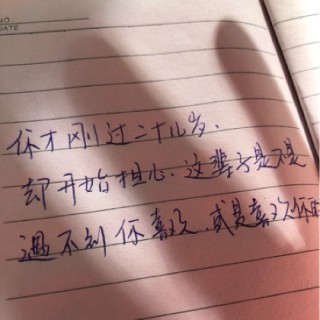 NO
DATE
你才刚过二十几岁.
却开始担心.这辈子是不是
遇不到你喜欢.或是喜欢你的